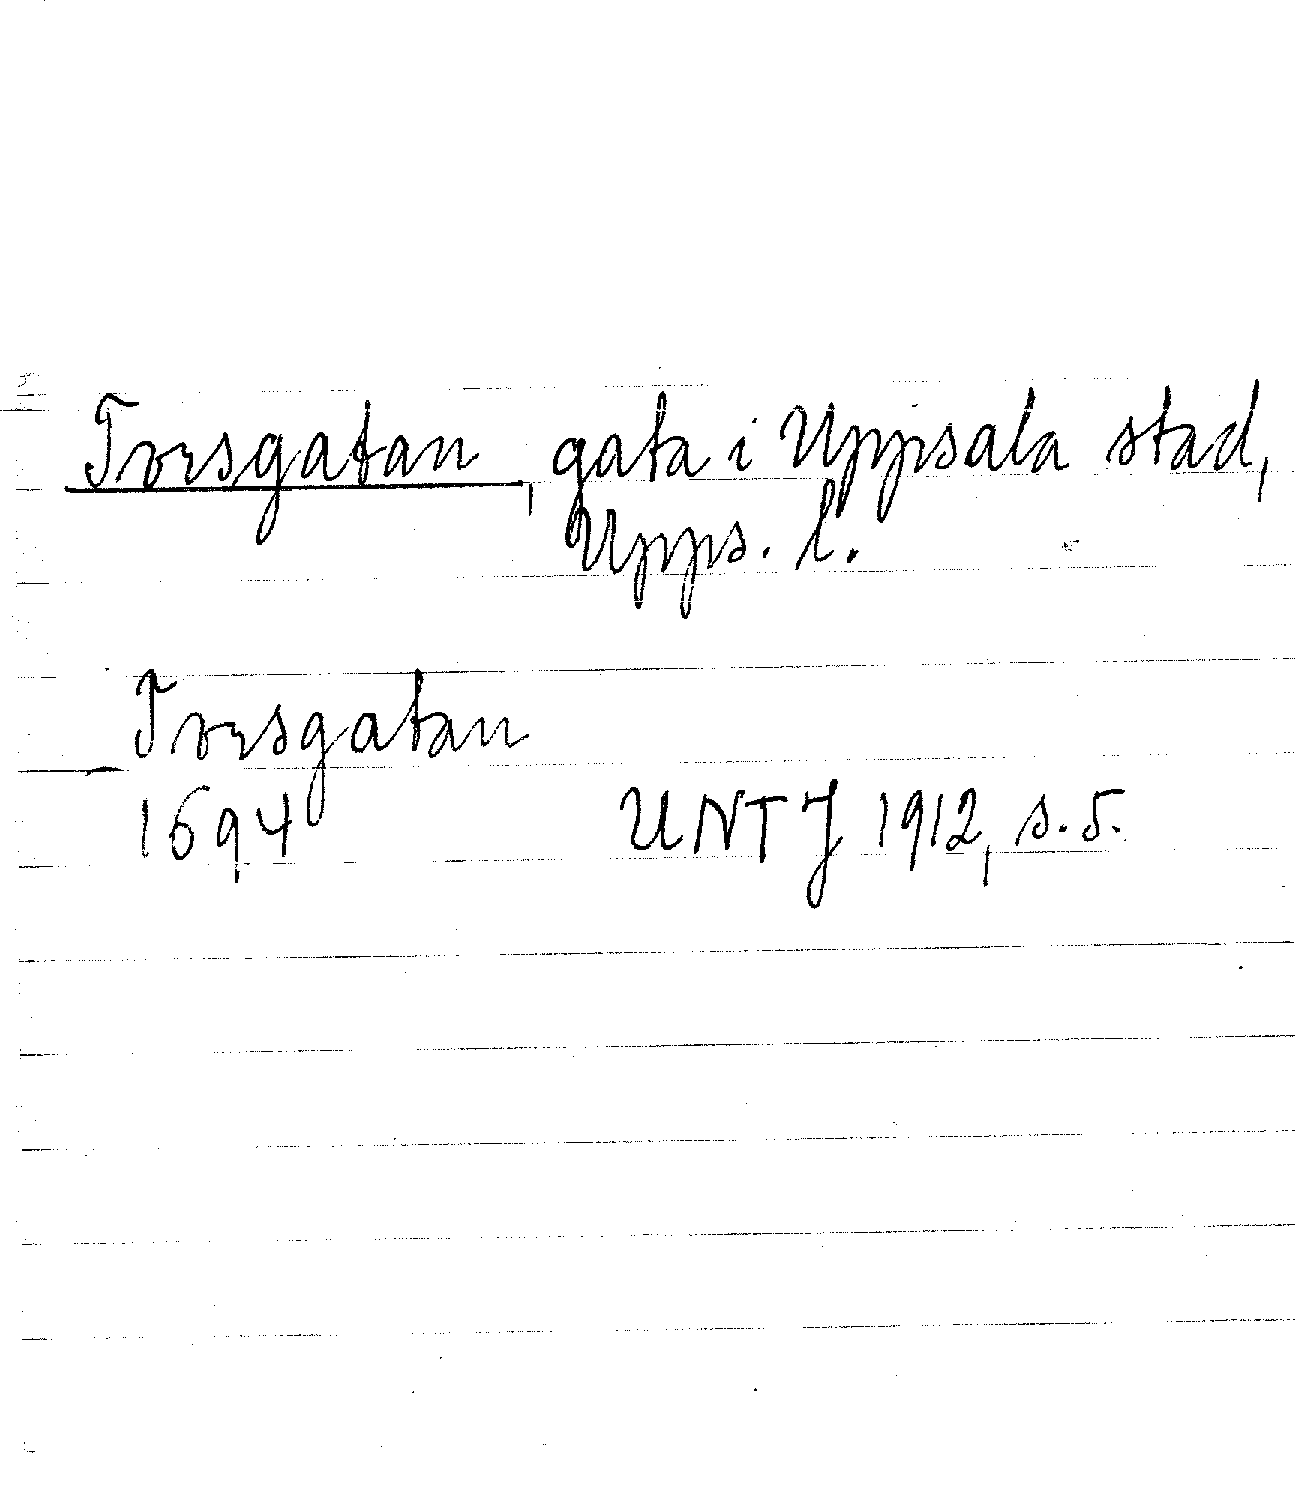 Torsgatan, gata i Uppsala stad,
Upps. l.
Torsgatan
1694 UNTJ 1912, s. 5.